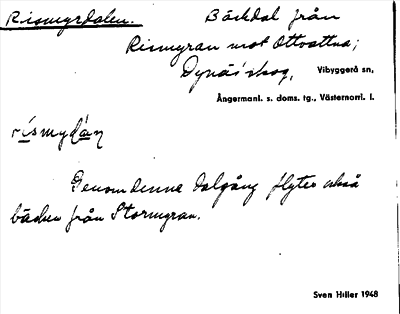 Rismyrdalen. Bäckdal från
Rismyran mot Ottvattna;
Dynäs skog, Vibyggerå sn,
Ångermanl. s. doms. tg., Västernorrl. l.
rismydán
Genom denne dalgång flyter också
bäcken från Stormyran.
Sven Hiller 1948